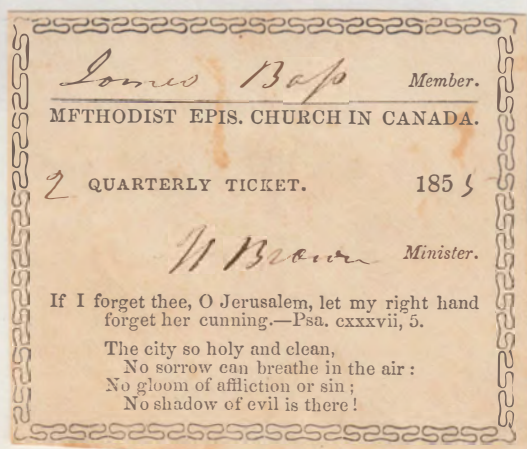 James Bass Member.
METHODIST EPIS. CHURCH IN CANADA.
2 QUARTERLY TICKET. 1855
Brown Minister.
If I forget thee, O Jerusalem, let my right hand
forget her cunning.—Psa. cxxxvii, 5.
The city so holy and clean,
No sorrow can breathe in the air :
No gloom of affliction or sin ;
No shadow of evil is there !